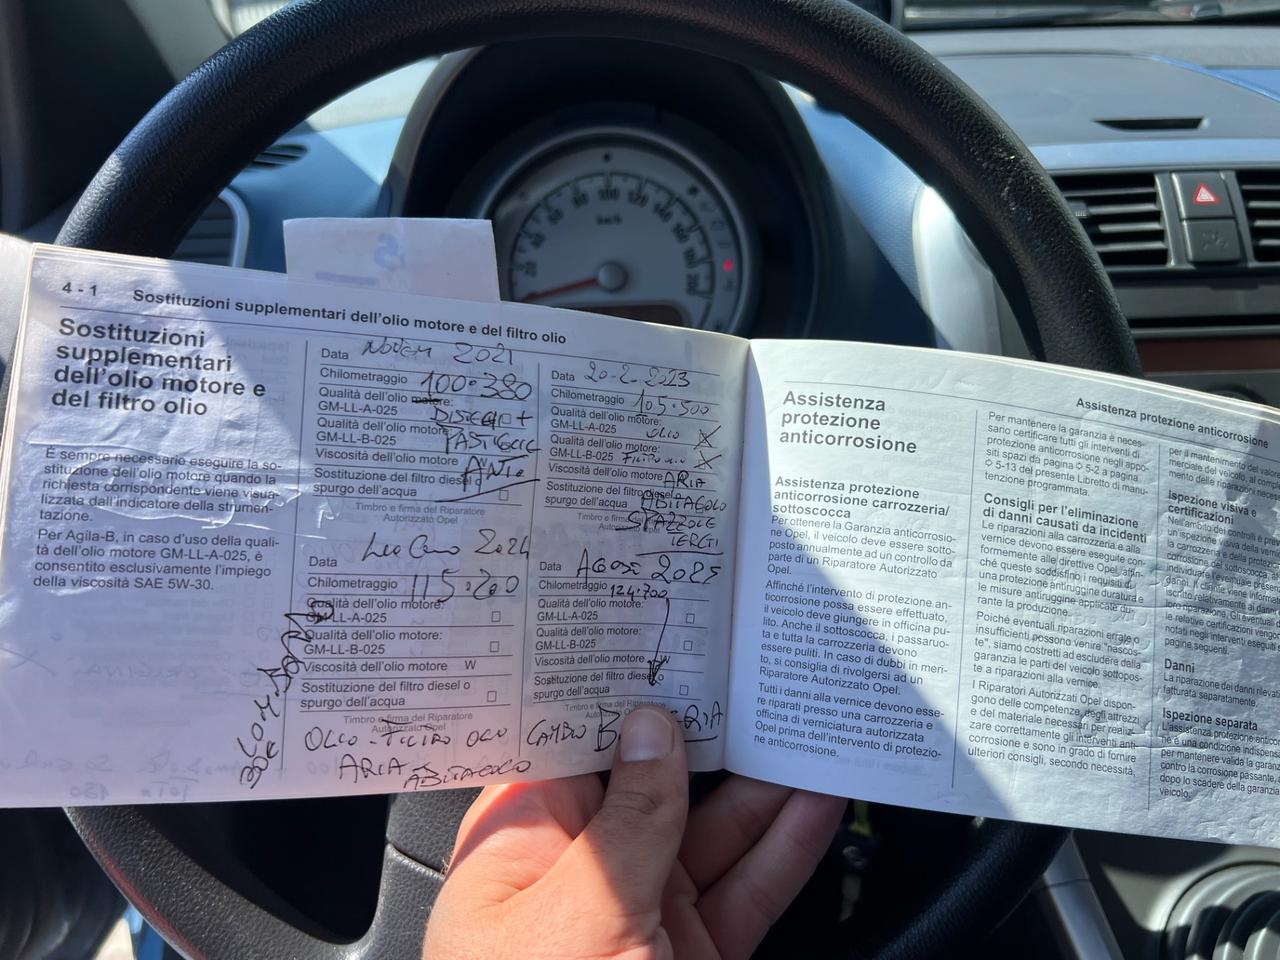 4 - 1 Sostituzioni supplementari dell'olio motore e del filtro olio
Sostituzioni
supplementari
dell'olio motore e
del filtro olio
È sempre necessario eseguire la so-
stituzione dell'olio motore quando la
richiesta corrispondente viene visua-
lizzata dall'indicatore della strumen-
tazione.
Per Agila-B, in caso d'uso della quali-
tà dell'olio motore GM-LL-A-025, è
consentito esclusivamente l'impiego
della viscosità SAE 5W-30.
Data NOVEM 2021
Chilometraggio 100.380
Qualità dell'olio motore:
GM-LL-A-025 DISCHI +
Qualità dell'olio motore:
GM-LL-B-025 PASTIGLIE
Viscosità dell'olio motore W ANTE
Sostituzione del filtro diesel o
spurgo dell'acqua
Timbro e firma del Riparatore
Autorizzato Opel
Data 2024
Chilometraggio 115.200
Qualità dell'olio motore:
GM-LL-A-025
Qualità dell'olio motore:
GM-LL-B-025
Viscosità dell'olio motore W
Sostituzione del filtro diesel o
spurgo dell'acqua
Timbro e firma del Riparatore
Autorizzato Opel
OLIO - FILTRO OLIO
ARIA - ABITACOLO
Data 20-2-2023
Chilometraggio 105.500
Qualità dell'olio motore:
GM-LL-A-025 OLIO
Qualità dell'olio motore:
GM-LL-B-025 FILTRO OLIO
Viscosità dell'olio motore ARIA
Sostituzione del filtro diesel o ABITACOLO
spurgo dell'acqua
SPAZZOLE
TERGI
Data AGOSE 2025
Chilometraggio 124.700
Qualità dell'olio motore:
GM-LL-A-025
Qualità dell'olio motore:
GM-LL-B-025
Viscosità dell'olio motore W
Sostituzione del filtro diesel o
spurgo dell'acqua
Timbro e firma del Riparatore
CAMBIO
Assistenza protezione anticorrosione
Assistenza
protezione
anticorrosione
Assistenza protezione
anticorrosione carrozzeria/
sottoscocca
Per ottenere la Garanzia anticorrosio-
ne Opel, il veicolo deve essere sotto-
posto annualmente ad un controllo da
parte di un Riparatore Autorizzato
Opel.
Affinché l'intervento di protezione an-
ticorrosione possa essere effettuato,
il veicolo deve giungere in officina pu-
lito. Anche il sottoscocca, i passaruo-
ta e tutta la carrozzeria devono
essere puliti. In caso di dubbi in meri-
to, si consiglia di rivolgersi ad un
Riparatore Autorizzato Opel.
Tutti i danni alla vernice devono esse-
re riparati presso una carrozzeria e
officina di verniciatura autorizzata
Opel prima dell'intervento di protezio-
ne anticorrosione.
Per mantenere la garanzia è neces-
sario certificare tutti gli interventi di
protezione anticorrosione negli appo-
siti spazi da pagina 5-2 a pagina
5-13 del presente Libretto di manu-
tenzione programmata.
Consigli per l'eliminazione
di danni causati da incidenti
Le riparazioni alla carrozzeria e alla
vernice devono essere eseguite con-
formemente alle direttive Opel, affin-
ché queste soddisfino i requisiti di
una protezione antiruggine duratura e
le misure antiruggine applicate du-
rante la produzione.
Poiché eventuali riparazioni errate o
insufficienti possono venire "nascos-
te", siamo costretti ad escludere dalla
garanzia le parti del veicolo sottopos-
te a riparazioni alla vernice.
I Riparatori Autorizzati Opel dispon-
gono delle competenze, degli attrezzi
e del materiale necessari per realiz-
zare correttamente gli interventi anti-
corrosione e sono in grado di fornire
ulteriori consigli, secondo necessità.
per il mantenimento del
merciale del veicolo,
delle riparazioni
Ispezione visiva e
certificazioni
Nell'ambito dei controlli
Danni
La riparazione dei danni
fatturata separatamente.
Ispezione separata
è una condizione
per mantenere valida la garanzia
contro la corrosione passante
dopo lo scadere della garanzia
veicolo.
20
60
80
100
120
140
km/h